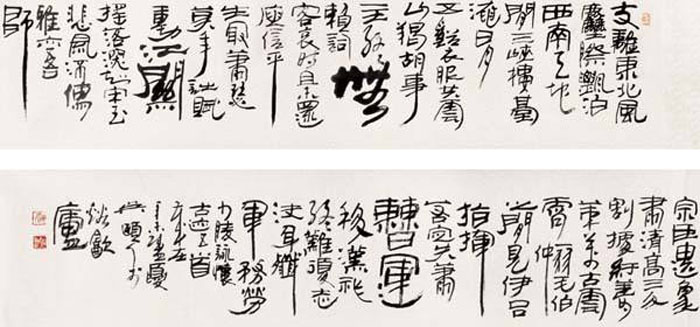 支離東北風
塵際漂泊
西南天地
間三峽樓臺
淹日月
五谿衣服共雲
山羯胡事
主終無
賴詞
客哀時且未還
庾信平
生最蕭瑟
暮年詩賦
動江關
搖落深知宋玉
悲風流儒
雅亦吾
師
宗臣遺象
肅清高三分
割據紆籌
策萬古雲
霄羽毛伯
仲
間見伊呂
指揮
若定失蕭
曹運
移漢祚
終難復志
決身殲
軍務勞
少陵詠懷
古迹首
廬